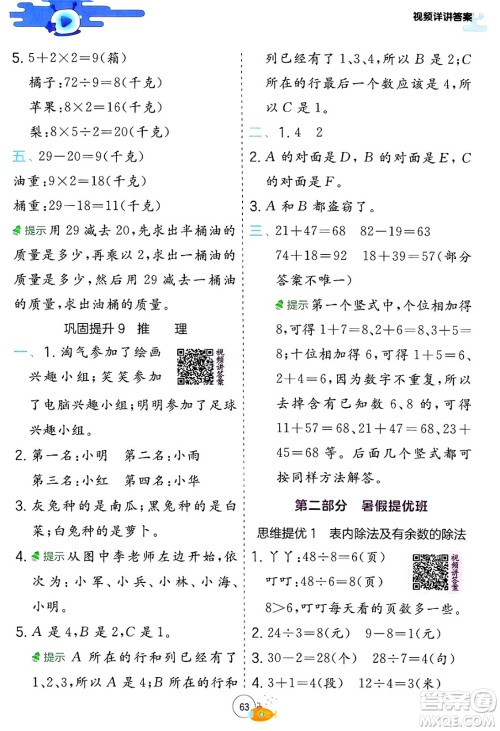 视频详讲答案
5. 5＋2×2＝9(箱)
橘子:72÷9＝8(千克)
苹果:8×2＝16(千克)
梨:8÷2×5＝20(千克)
五、29－20＝9(千克)
油重:9×2＝18(千克)
桶重:29－18＝11(千克)
提示 用 29 减去 20，先求出半桶油的
质量是多少，再乘以 2，求出一桶油的
质量是多少，然后用 29 减去一桶油
的质量，求出油桶的质量。
巩固提升 9 推 理
一、1. 淘气参加了绘画
兴趣小组；笑笑参加
了电脑兴趣小组；丁丁参加了足球
兴趣小组。
视频讲答案
2. 第一名:小明 第二名:小雨
第三名:小红 第四名:小华
3. 灰兔种的是南瓜；黑兔种的是西瓜；
白兔种的是冬瓜。
4. 提示 从图中李老师左边开始，依次
为：小军、小兵、小林、小海、小小、
小明。
5. A 是 4，B 是 2，C 是 1。
提示 A 所在的行和列已经有了
1、2、3，所以 A 是 4；B 所在的行和
列已经有了 1、3、4，所以 B 是 2；C
所在的行最后一个数应该是 4，所
以 C 是 1。
二、1. 4 2
2. A 的对面是 D，B 的对面是 F，C 的
对面是 E。
3. B 和 A 都盗窃了。
三、21＋47＝68 81－18＝63
74＋18＝92 37＋21＝58(部分
答案不唯一)
提示 第一个竖式中，个位相加得
8，十位相加得 6，可能的情况有
10＋58＝68，11＋57＝68……再
去掉含有重复数字的式子和含有
8、6、0 的式子，剩下的算式有
21＋47＝68、27＋41＝68，都可
以。后面的竖式和第一个竖式用
同样方法解答。
第二部分 暑假提优班
思维提优 1 表内除法及有余数的除法
1. 丫丫:48÷8＝6(页)
叮叮:48÷6＝8(页)
8＞6，叮叮每天看的页数多一些。
视频讲答案
2. 24÷3＝8(元) 16÷8＝2(元)
3. 30－2＝28(页) 28÷4＝7(页)
4. 3＋1＝4(段) 36÷4＝9(分米)
63
答案圈